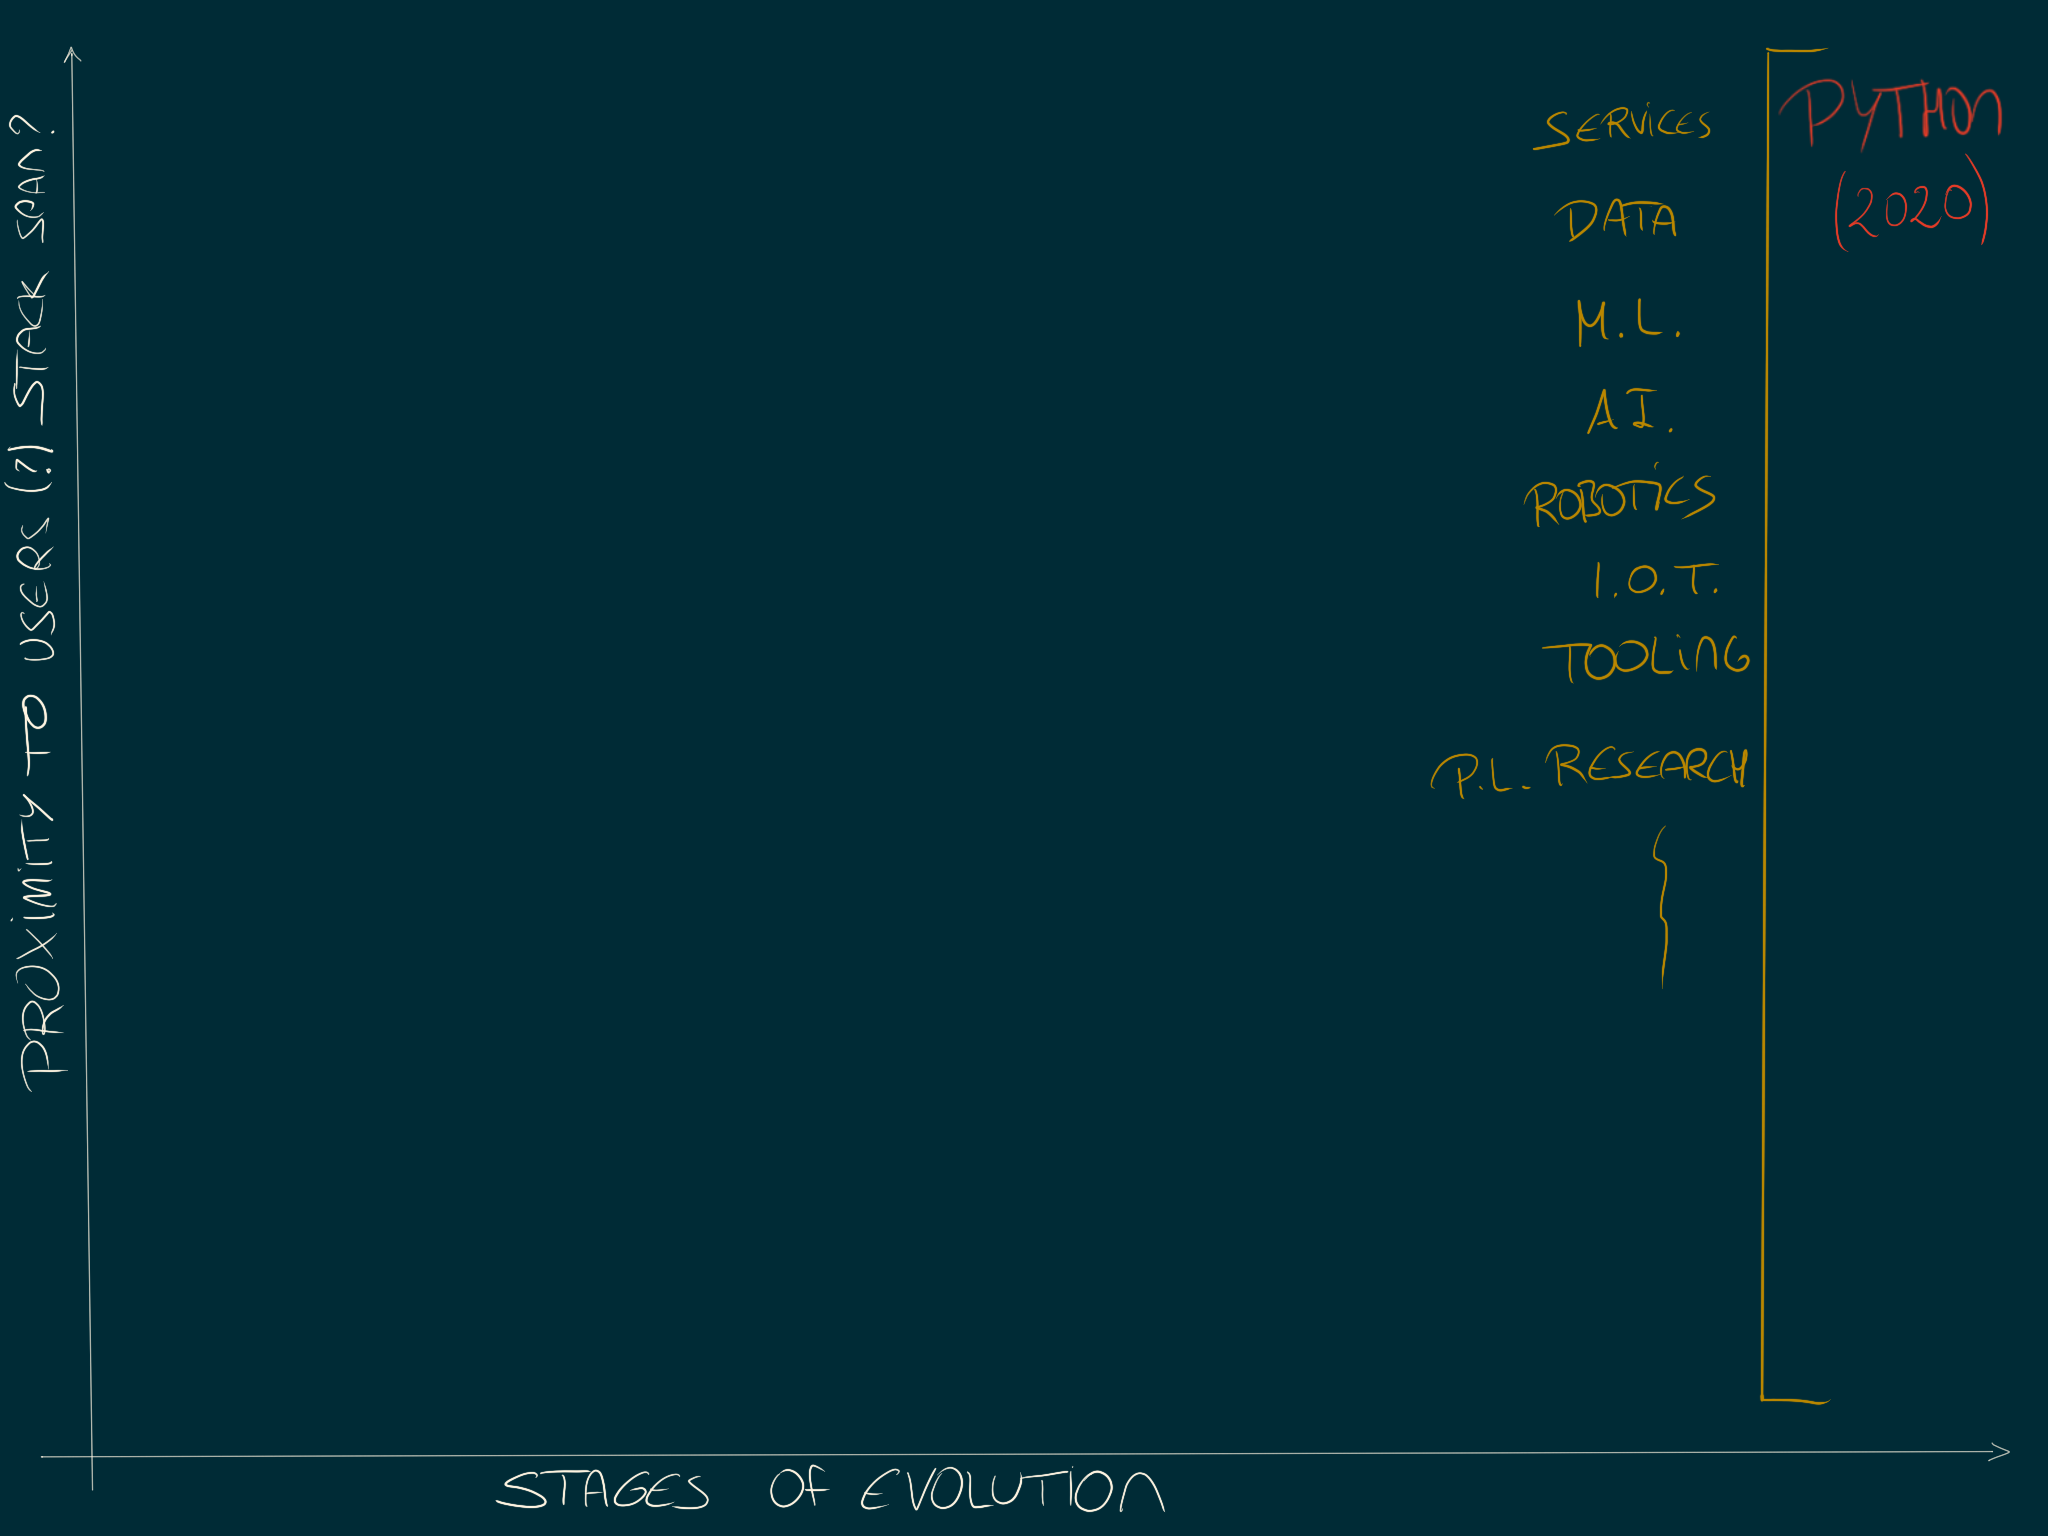 PROXIMITY TO USERS (?) STACK SPAN?
SERVICES
DATA
M.L.
A I.
ROBOTICS
I.O.T.
TOOLING
P.L. RESEARCH
PYTHON
(2020)
STAGES OF EVOLUTION